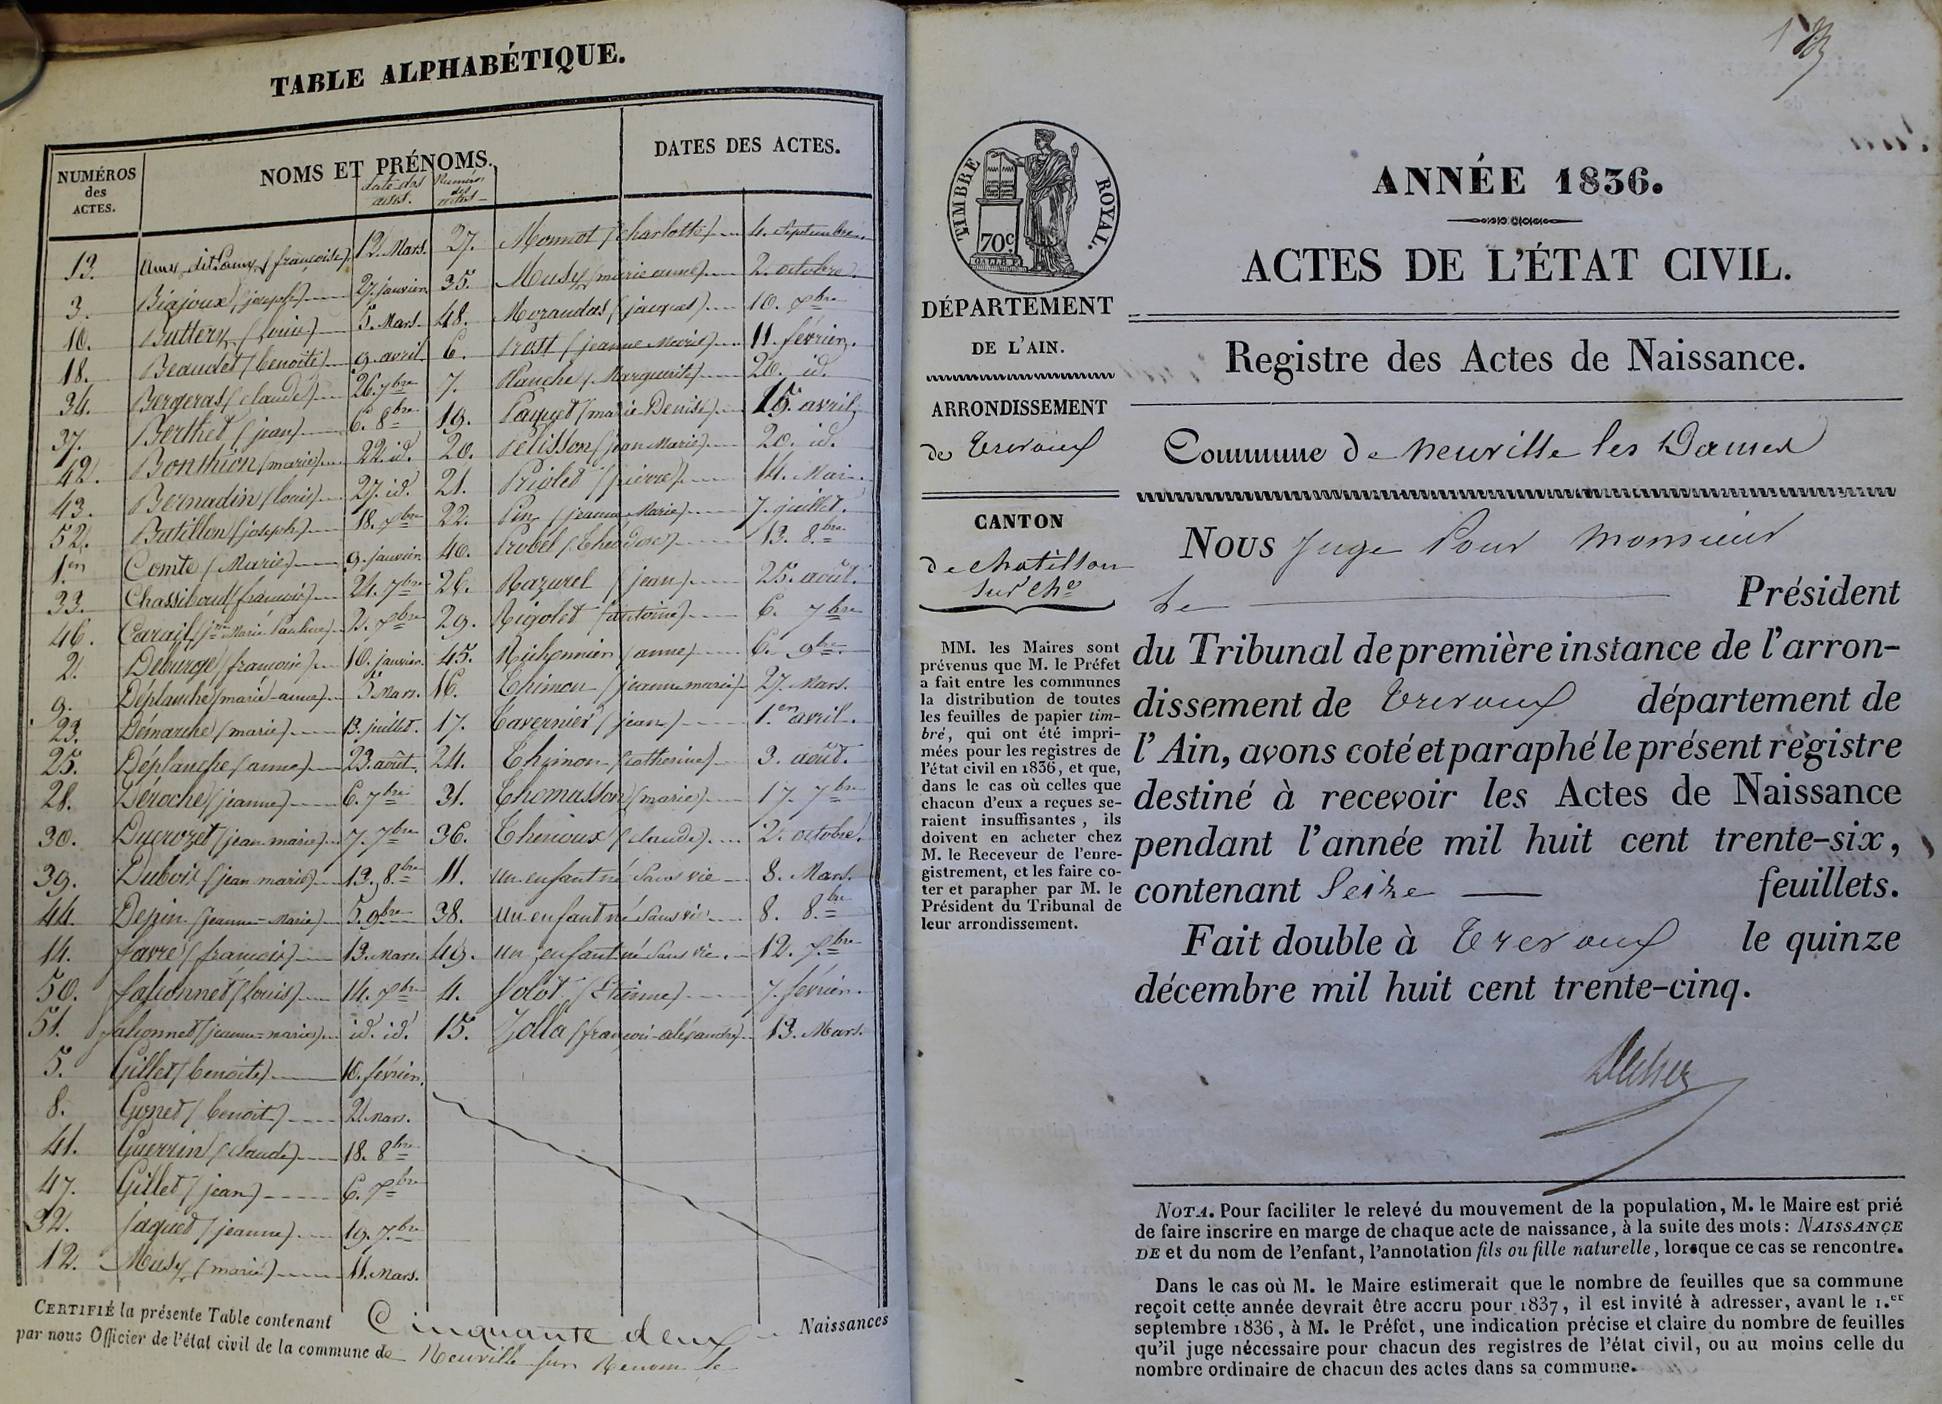 TABLE ALPHABÉTIQUE.
NUMÉROS des ACTES.
NOMS ET PRÉNOMS.
date des actes.
Numéros des actes
DATES DES ACTES.
13. (françoise) 12. Mars.
3. Biajoux (joseph) 27. janvier
10. Buttery (Louise) 5. Mars.
18. Beaudet (benoîte) 9. avril.
34. Bergeras (claude) 26. 7bre
37. Berthet (jean) 6. 8bre
42. Bonthion (marie) 22. id.
43. Bernadin (louis) 27. id.
52. Batillon (joseph) 18. Xbre
1er Comte (Marie) 9. janvier
33. Chassibout (françois) 24. 7bre
46. Carail (jne Marie Pauline) 2. Xbre
2. Deburge (françoise) 10. janvier
9. Déplanche (marie-anne) 5. Mars.
23. Démarche (marie) 13. juillet.
25. Déplanche (anne) 23. août.
28. Déroche (jeanne) 6. 7bre
30. Durozet (jean marie) 7. 7bre
39. Dubois (jean marie) 13. 8bre
44. Depin (jeanne=Marie) 5. 9bre
14. favre (françois) 13. Mars.
50. falionnet (Louis) 14. Xbre
51. falionnet (jeanne=marie) id. id.
5. Gillet (benoîte) 10. février.
8. Gonet (benoit) 2. Mars.
41. Guerrin (claude) 18. 8bre
47. Gillet (jean) 6. Xbre
32. jaquet (jeanne) 19. 7bre
12. Musy (marie) 11. Mars.
27. Monnet (charlotte) 4. Septembre.
35. Musy (marie anne) 2. octobre.
48. Morandas (jacques) 10. Xbre
6. Pratt (jeanne Marie) 11. février.
7. Planche (Marguerite) 26. id.
19. Paquet (marie Denise) 15. avril
20. Pélisson (jean Marie) 20. id.
21. Priolet (pierre) 14. Mai.
22. Pin (jeanne Marie) 7. juillet.
40. Probet (Théodore) 13. 8bre
26. Razurel (jean) 25. août.
29. Rigolet (antoine) 6. 7bre
45. Richonnier (anne) 6. 9bre
16. Thimon (jeanne marie) 27. Mars.
17. Tavernier (jean) 1.er avril.
24. Thimon (catherine) 3. août.
31. Thomasson (marie) 17. 7bre
36. Thenoux (claude) 2. octobre.
11. un enfant né sans vie 8. Mars.
38. un enfant né sans vie 8. 8bre
49. un enfant né sans vie. 12. Xbre
4. Jolot (Etienne) 7. février.
15. Jolla (françois-alexandre) 13. Mars.
CERTIFIÉ la présente Table contenant Cinquante deux Naissances
par nous Officier de l'état civil de la commune de Neuville sur Renom le
TIMBRE ROYAL.
70c.
DÉPARTEMENT
DE L'AIN.
ARRONDISSEMENT
de Trevoux
CANTON
de chatillon
sur Che
MM. les Maires sont
prévenus que M. le Préfet
a fait entre les communes
la distribution de toutes
les feuilles de papier tim-
bré, qui ont été impri-
mées pour les registres de
l'état civil en 1836, et que,
dans le cas où celles que
chacun d'eux a reçues se-
raient insuffisantes, ils
doivent en acheter chez
M. le Receveur de l'enre-
gistrement, et les faire co-
ter et parapher par M. le
Président du Tribunal de
leur arrondissement.
ANNÉE 1836.
ACTES DE L'ÉTAT CIVIL.
Registre des Actes de Naissance.
Commune de Neuville les Dames
NOUS Juge Pour Monsieur
Le Président
du Tribunal de première instance de l'arron-
dissement de Trevoux département de
l'Ain, avons coté et paraphé le présent règistre
destiné à recevoir les Actes de Naissance
pendant l'année mil huit cent trente-six,
contenant Seize feuillets.
Fait double à Trevoux le quinze
décembre mil huit cent trente-cinq.
NOTA. Pour faciliter le relevé du mouvement de la population, M. le Maire est prié
de faire inscrire en marge de chaque acte de naissance, à la suite des mots: NAISSANCE
DE et du nom de l'enfant, l'annotation fils ou fille naturelle, lorsque ce cas se rencontre.
Dans le cas où M. le Maire estimerait que le nombre de feuilles que sa commune
reçoit cette année devrait être accru pour 1837, il est invité à adresser, avant le 1.er
septembre 1836, à M. le Préfet, une indication précise et claire du nombre de feuilles
qu'il juge nécessaire pour chacun des registres de l'état civil, ou au moins celle du
nombre ordinaire de chacun des actes dans sa commune.